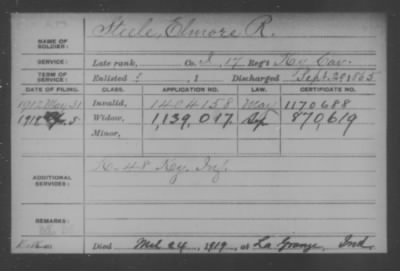 NAME OF SOLDIER: Steele, Elmore R.
SERVICE: Late rank, Co. I, 17 Reg't Ky. Cav.
TERM OF SERVICE: Enlisted ?, 1 Discharged Sept. 20 1865
DATE OF FILING. CLASS. APPLICATION NO. LAW. CERTIFICATE NO.
1912 May 31 Invalid, 1404158 May 1170688
1919 5 Widow, 1,139,017 Sep 870,619
Minor,
ADDITIONAL SERVICES: K 48 Ky. Inf.
REMARKS:
Died Mch 24, 1919, at La Grange, Ind.